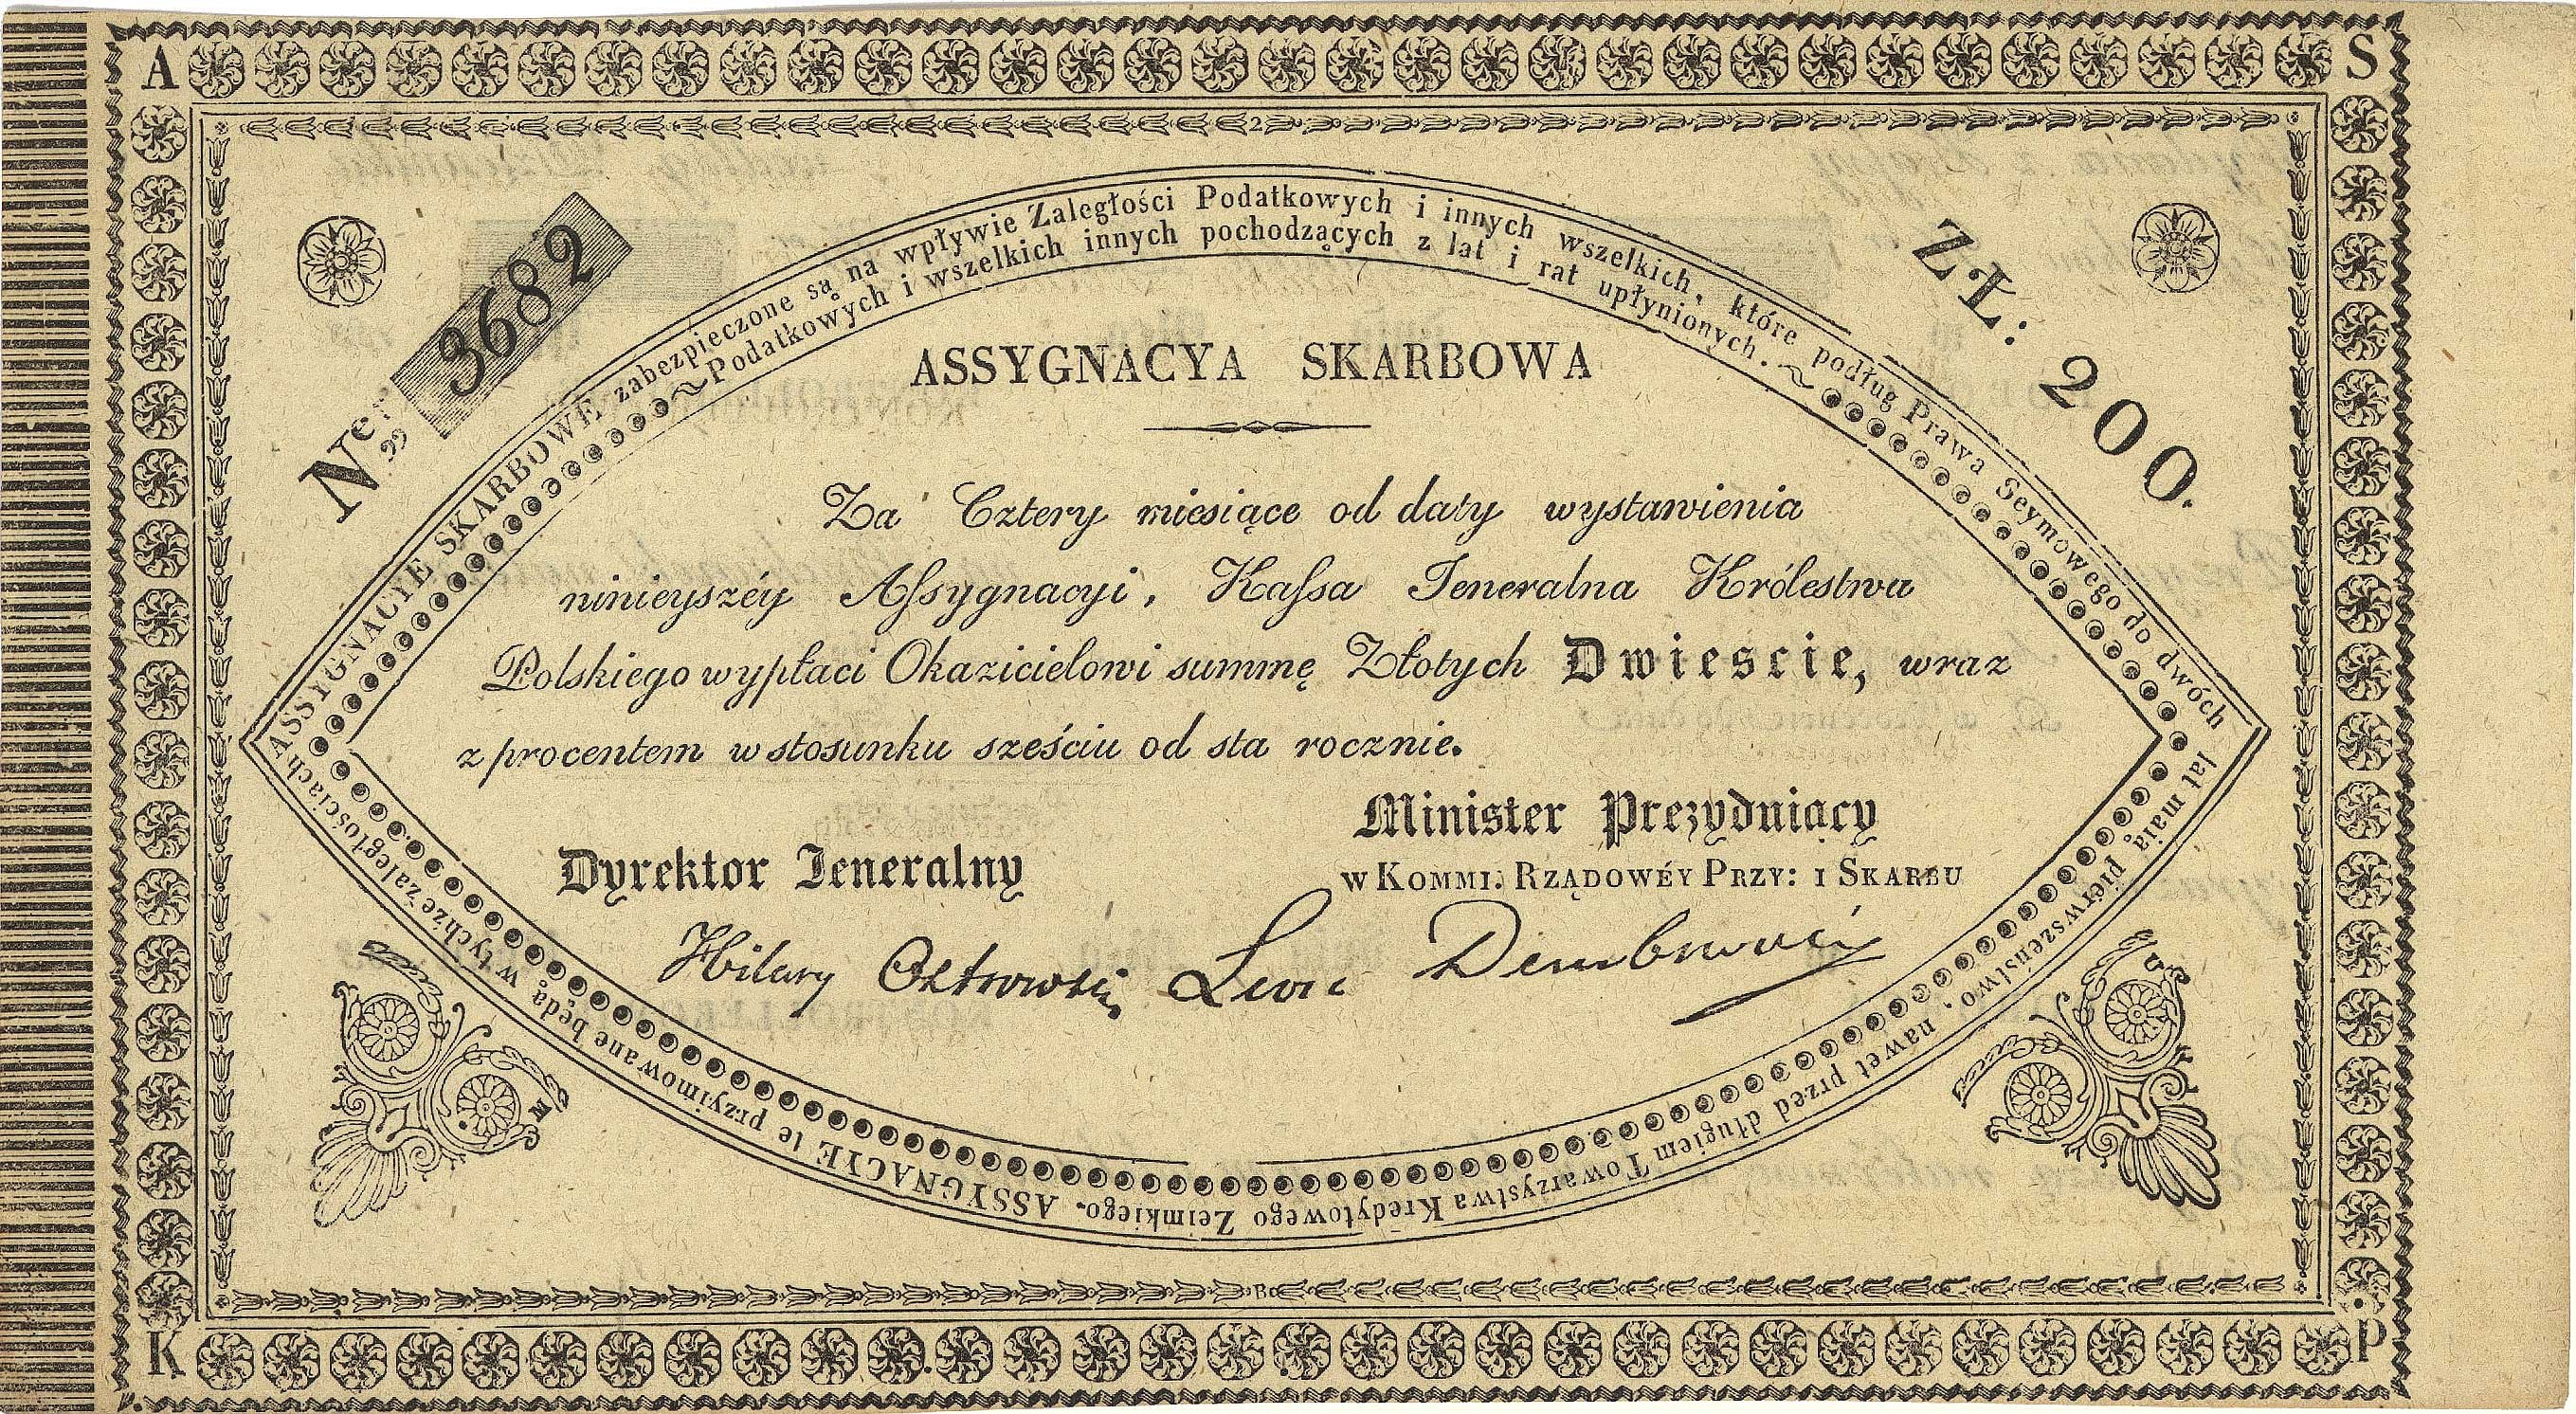 A S
Ner 3682
ZŁ: 200.
ASSYGNACYE SKARBOWE zabezpieczone są na wpływie Zaległości Podatkowych i innych wszelkich, które podług Prawa Seymowego do dwóch
lat maią pierwszeństwo, nawet przed długiem Towarzystwa Kredytowego Zeimkiego. ASSYGNACYE te przyimowane będą w tychże zaległościach
Podatkowych i wszelkich innych pochodzących z lat i rat upłynionych.
ASSYGNACYA SKARBOWA
Za Cztery miesiące od daty wystawienia
ninieyszéy Assygnacyi, Kassa Jeneralna Królestwa
Polskiego wypłaci Okazicielowi summę Złotych Dwiescie, wraz
z procentem w stosunku sześciu od sta rocznie.
Minister Prezyduiący
w Kommi: Rządowéy Przy: i Skarbu
Dyrektor Jeneralny
Hilary Ostrowski Leon Dembowski
K P